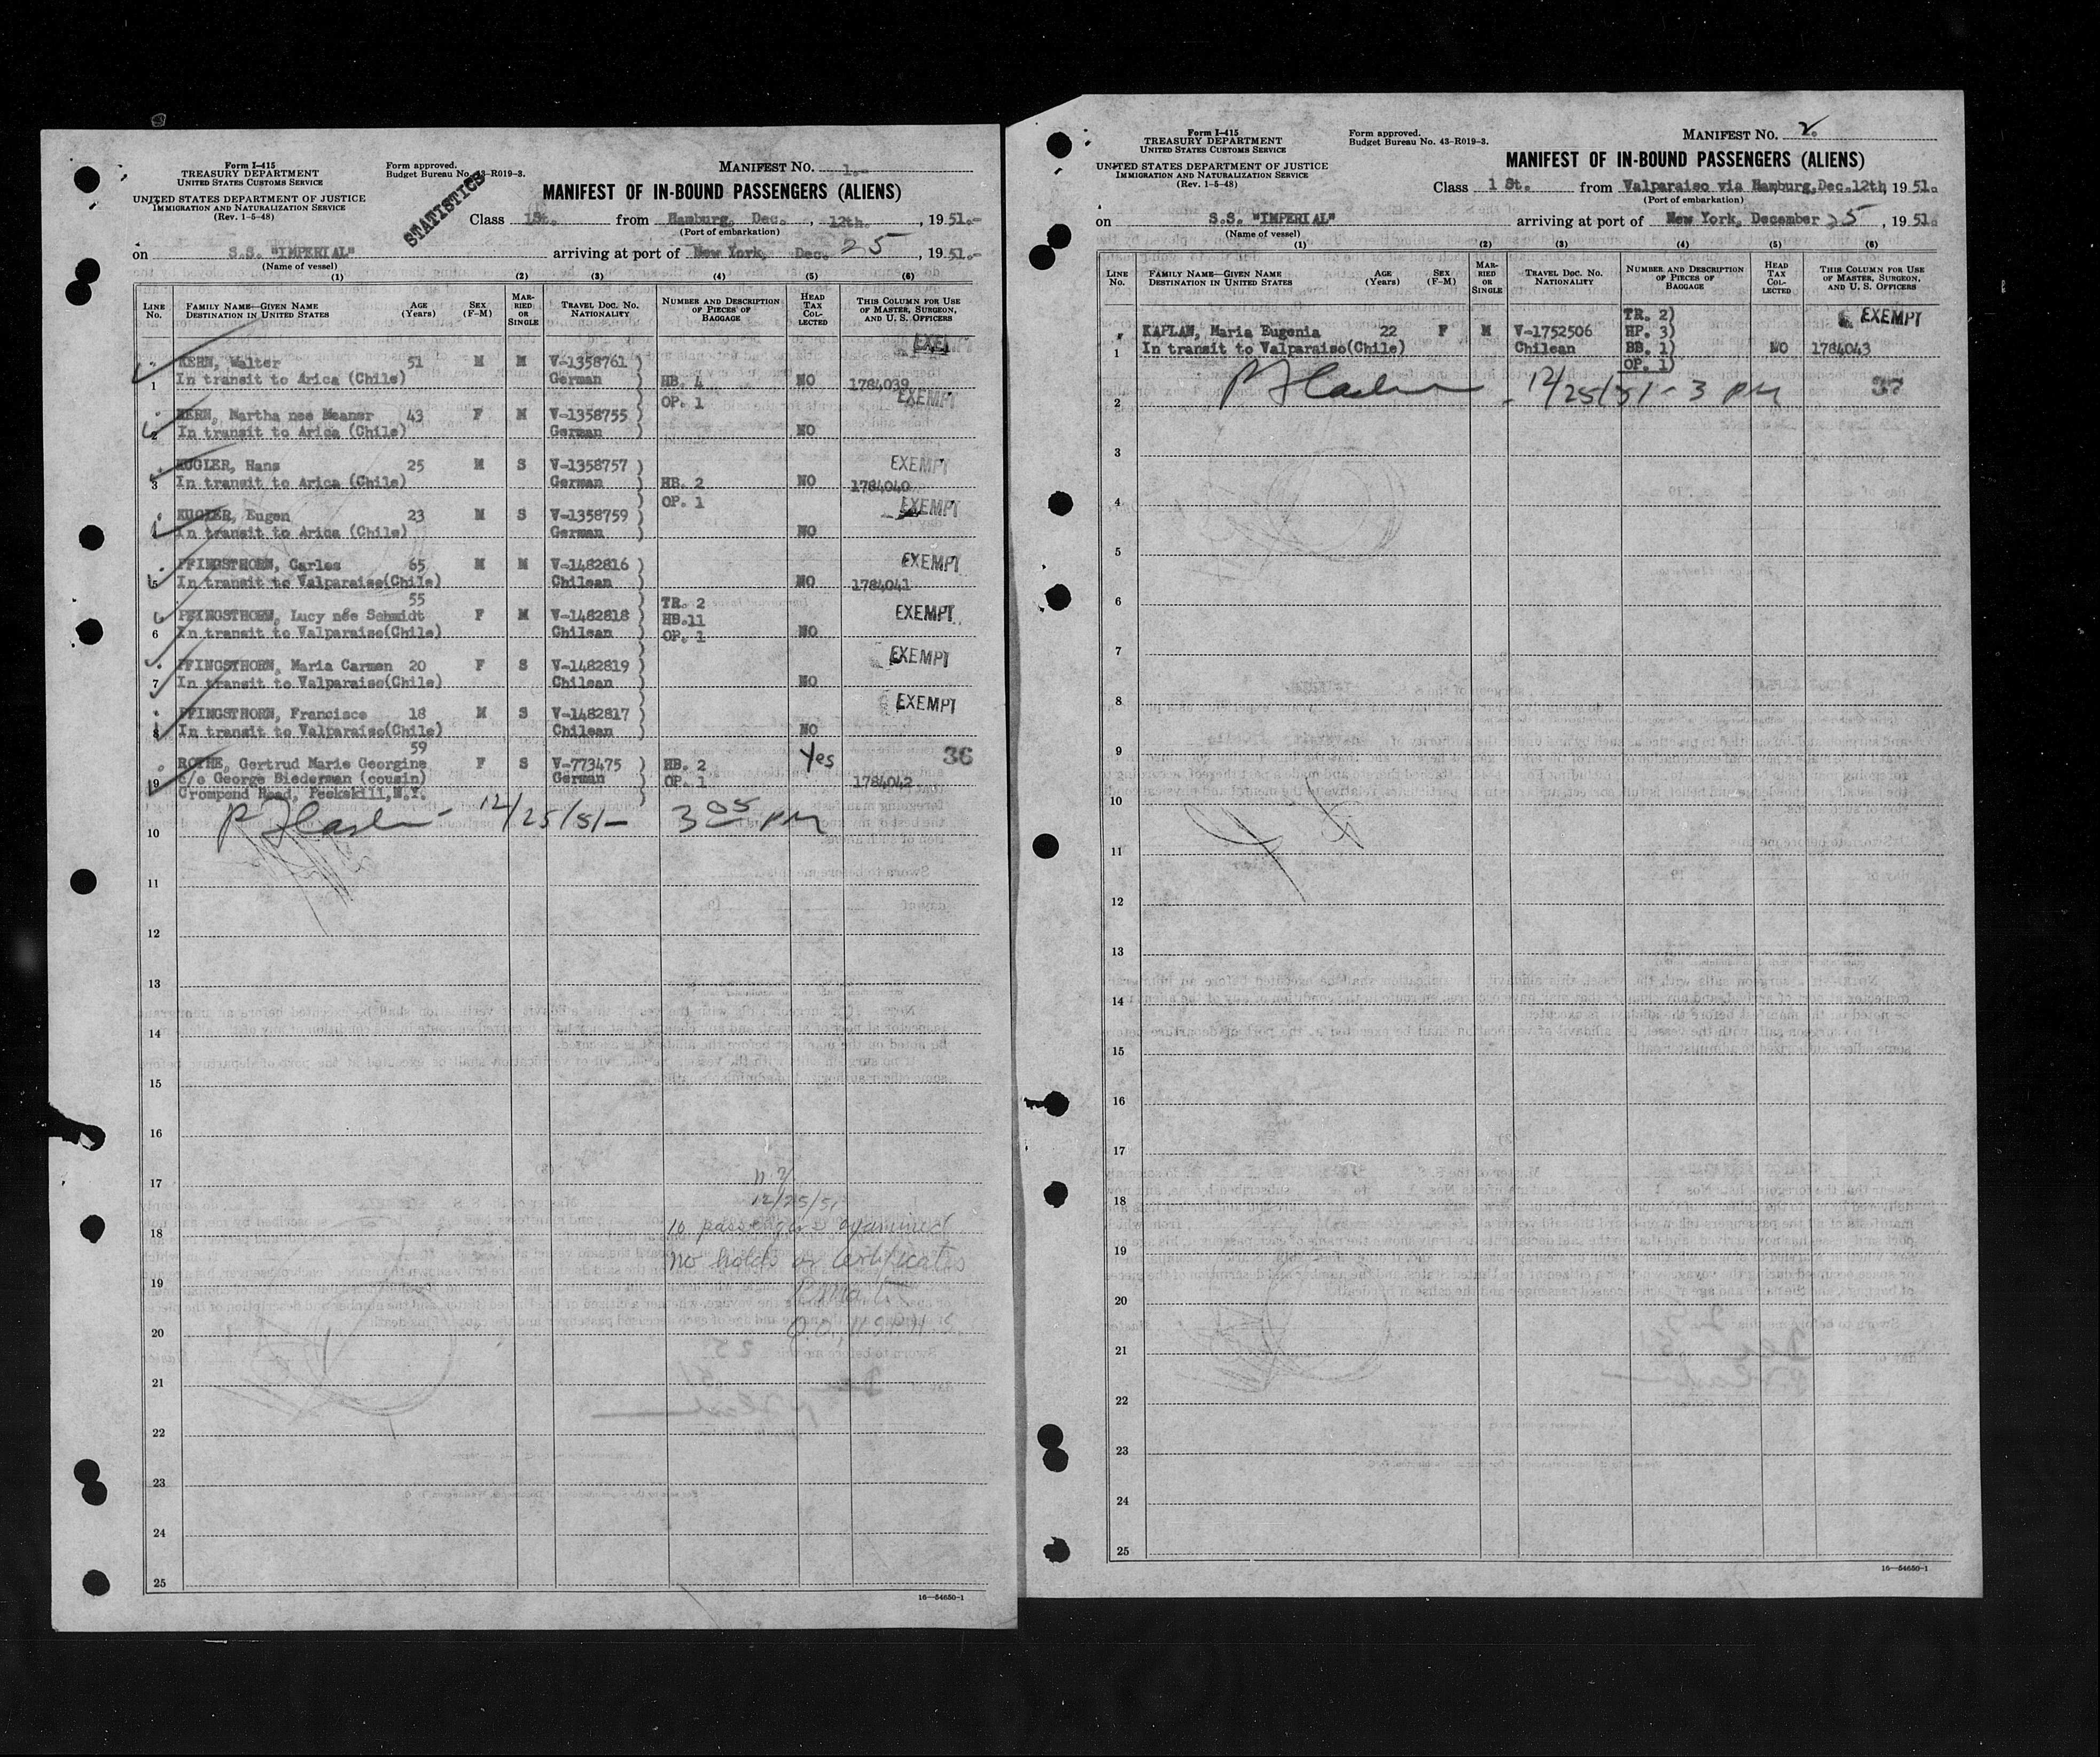 Form I-415
TREASURY DEPARTMENT
UNITED STATES CUSTOMS SERVICE
UNITED STATES DEPARTMENT OF JUSTICE
IMMIGRATION AND NATURALIZATION SERVICE
(Rev. 1-5-48)
Form approved.
Budget Bureau No. 43-R019-3.
STATISTICS
MANIFEST NO. 1.-
MANIFEST OF IN-BOUND PASSENGERS (ALIENS)
Class 1St. from Hamburg, Dec. 12th. , 1951.-
(Port of embarkation)
on S.S. "IMPERIAL" arriving at port of New York, Dec. 25 , 1951.-
(Name of vessel)
(1) (2) (3) (4) (5) (6)
LINE No. FAMILY NAME—GIVEN NAME DESTINATION IN UNITED STATES AGE (Years) SEX (F-M) MARRIED OR SINGLE TRAVEL DOC. NO. NATIONALITY NUMBER AND DESCRIPTION OF PIECES OF BAGGAGE HEAD TAX COLLECTED THIS COLUMN FOR USE OF MASTER, SURGEON, AND U. S. OFFICERS
KERN, Walter 51 M M V-1358761 )
1 In transit to Arica (Chile) German HB. 4 NO 1784039
OP. 1 EXEMPT
KERN, Martha nee Meaner 43 F M V-1358755
2 In transit to Arica (Chile) German NO
KUGLER, Hans 25 M S V-1358757 ) EXEMPT
3 In transit to Arica (Chile) German HB. 2 NO 1784040
OP. 1 EXEMPT
KUGLER, Eugen 23 M S V-1358759
4 In transit to Arica (Chile) German NO
PFINGSTHORN, Carlos 65 M M V-1482816 ) EXEMPT
5 In transit to Valparaiso(Chile) Chilean NO 1784041
55 TR. 2
PFINGSTHORN, Lucy née Schmidt F M V-1482818 ) HB.11 EXEMPT
6 In transit to Valparaiso(Chile) Chilean OP. 1 NO
PFINGSTHORN, Maria Carmen 20 F S V-1482819 ) EXEMPT
7 In transit to Valparaiso(Chile) Chilean NO
PFINGSTHORN, Francisco 18 M S V-1482817 ) EXEMPT
8 In transit to Valparaiso(Chile) Chilean NO
59
ROTHE, Gertrud Marie Georgine F S V-773475 ) HB. 2 Yes 36
9 c/o George Biederman (cousin) German OP. 1 1784042
Crompond Road, Peekskill, N.Y.
12/25/51- 3 05 PM
10
11
12
13
14
15
16
17
12/25/51
10 passengers examined
18
no holds or certificates
19
20
21
22
23
24
25
16—54650-1
Form I-415
TREASURY DEPARTMENT
UNITED STATES CUSTOMS SERVICE
UNITED STATES DEPARTMENT OF JUSTICE
IMMIGRATION AND NATURALIZATION SERVICE
(Rev. 1-5-48)
Form approved.
Budget Bureau No. 43-R019-3.
MANIFEST NO. 2.
MANIFEST OF IN-BOUND PASSENGERS (ALIENS)
Class 1 St. from Valparaiso via Hamburg,Dec.12th, 1951.
(Port of embarkation)
on S.S. "IMPERIAL" arriving at port of New York, December 25 , 1951.
(Name of vessel)
(1) (2) (3) (4) (5) (6)
LINE No. FAMILY NAME—GIVEN NAME DESTINATION IN UNITED STATES AGE (Years) SEX (F-M) MARRIED OR SINGLE TRAVEL DOC. NO. NATIONALITY NUMBER AND DESCRIPTION OF PIECES OF BAGGAGE HEAD TAX COLLECTED THIS COLUMN FOR USE OF MASTER, SURGEON, AND U. S. OFFICERS
TR. 2) EXEMPT
KAPLAN, Maria Eugenia 22 F M V-1752506 HP. 3)
1 In transit to Valparaiso(Chile) Chilean BB. 1) NO 1784043
OP. 1)
12/25/51 - 3 PM 37
2
3
4
5
6
7
8
9
10
11
12
13
14
15
16
17
18
19
20
21
22
23
24
25
16—54650-1